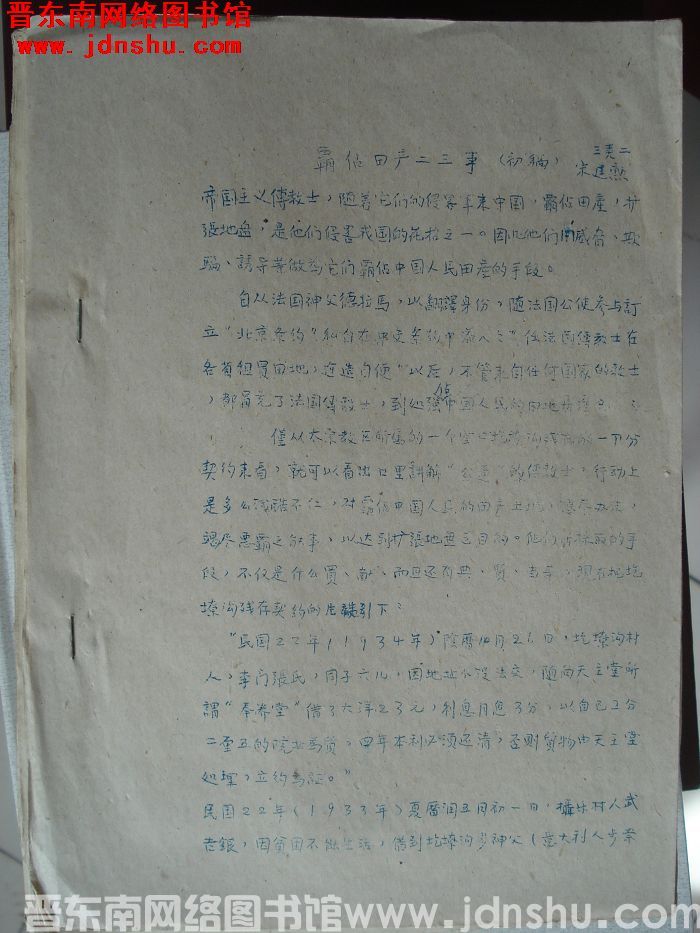 晋东南网络图书馆
www.jdnshu.com
霸佔田产二三事（初稿） 宋建勲
帝国主义傳教士，随着它们的侵畧来中国，霸佔田產，扩
張地盘，是他们侵害我国的花招之一。因此他们用威脅、欺
騙、誘导等做為它们霸佔中国人民田產的手段。
自从法国神父德拉馬，以翻譯身份，随法国公使参与訂
立“北京条约”私自在中文条约中添入之“任法国傳教士在
各省租買田地，建造自便”以后，不管来自任何国家的教士
，都冒充了法国傳教士，到处强佔中国人民的田地
僅从太宗教区所属的一个圪㙩沟的一部分
契约来看，就可以看出口里講解“公道”的傳教士，行动上
是多么残酷不仁，对霸佔中国人民的田产土地，想尽办法，
竭尽恶霸之能事，以达到扩張地盘之目的。他们所採取的手
段，不仅是什么買、献，而且还有典、質、当等，现在把圪
㙩沟残存契约的片断引下：
“民国22年（1934年）陰曆10月26日，圪㙩沟村
人，李门張氏，同子六儿，因地址不没法交，随向天主堂所
謂“奉养堂”借了大洋23元，利息月息3分，以自己2分
二至五的院北為質，四年本利必須还清，否則貨物由天主堂
处理，立约為証。”
民国22年（1933年）夏曆润五月初一日，村人武
老銀，因貧困不能生活，借到圪㙩沟步神父（意大利人步
晋东南网络图书馆 www.jdnshu.com